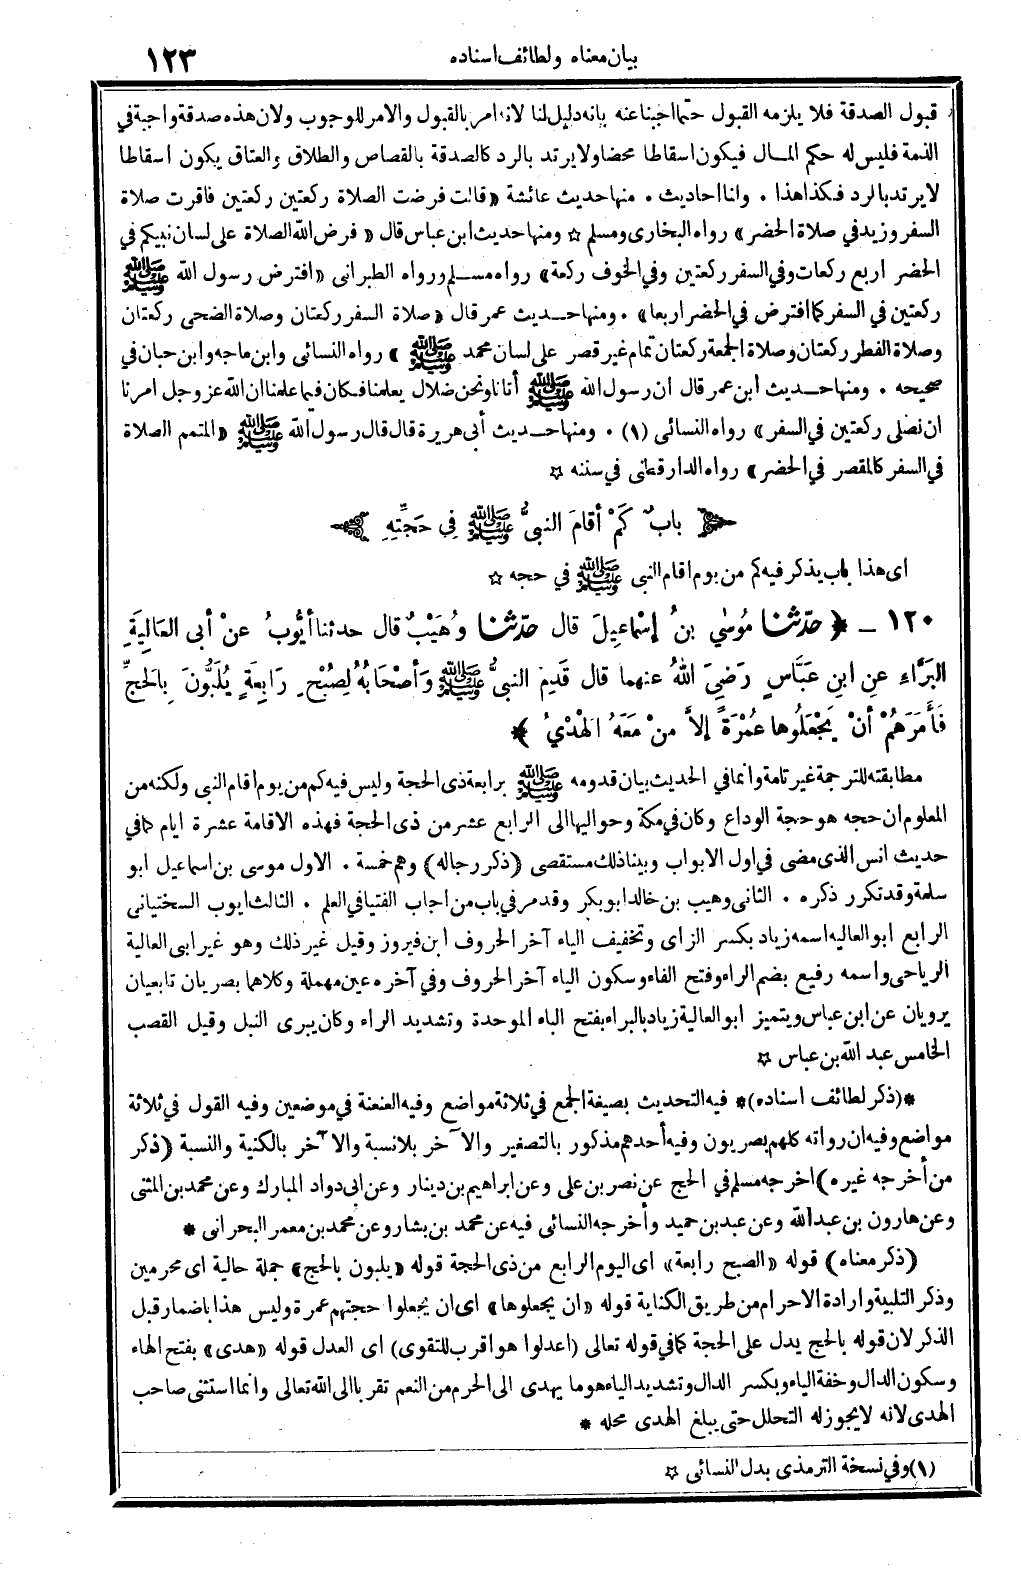 بيان معناه ولطائف اسناده ١٢٣
قبول الصدقة فلا يلزمه القبول حتما اجبنا عنه بانه دليل لنا لانه امر بالقبول والامر للوجوب ولان هذه صدقة واجبة في
الذمة فليس له حكم المال فيكون اسقاطا محضا ولا يرتد بالرد كالصدقة بالقصاص والطلاق والعتاق يكون اسقاطا
لا يرتد بالرد فكذا هذا . وانا احاديث . منها حديث عائشة « قالت فرضت الصلاة ركعتين ركعتين فاقرت صلاة
السفر وزيد في صلاة الحضر » رواه البخارى ومسلم ☆ ومنها حديث ابن عباس قال « فرض الله الصلاة على لسان نبيكم في
الحضر اربع ركعات وفي السفر ركعتين وفي الخوف ركعة » رواه مسلم ورواه الطبرانى « افترض رسول الله ﷺ
ركعتين في السفر كما افترض في الحضر اربعا » . ومنها حديث عمر قال « صلاة السفر ركعتان وصلاة الضحى ركعتان
وصلاة الفطر ركعتان وصلاة الجمعة ركعتان تمام غير قصر على لسان محمد ﷺ » رواه النسائى وابن ماجه وابن حبان في
صحيحه . ومنها حديث ابن عمر قال ان رسول الله ﷺ أتانا ونحن ضلال يعلمنا فكان فيما علمنا ان الله عز وجل امرنا
ان نصلى ركعتين في السفر » رواه النسائى (١) . ومنها حديث أبى هريرة قال قال رسول الله ﷺ « المتمم الصلاة
في السفر كالمقصر في الحضر » رواه الدارقطنى في سننه ☆
﴿ بابٌ كَمْ أقامَ النبىُّ ﷺ فِي حَجَّتِهِ ﴾
اى هذا باب يذكر فيه كم من يوم اقام النبى ﷺ في حجه ☆
١٢٠ ـ ﴿ حدّثنا مُوسٰي بنُ إسْماعِيلَ قال حدّثنا وُهَيْبٌ قال حدثنا أيُّوبُ عنْ أبى العَالِيةِ
البَرَّاءِ عنِ ابنِ عَبَّاسٍ رَضِيَ اللهُ عنهما قال قَدِمَ النبىُّ ﷺ وَأصْحَابُهُ لِصُبْحِ رَابِعَةٍ يُلَبُّونَ بِالحَجِّ
فَأمَرَهُمْ أنْ يَجْعَلُوها عُمْرَةً إلاَّ منْ مَعَهُ الهَدْىُ ﴾ *
مطابقته للترجمة غير تامة وانما في الحديث بيان قدومه ﷺ برابعة ذى الحجة وليس فيه كم من يوم اقام النبى ولكنه من
المعلوم ان حجه هو حجة الوداع وكان في مكة وحواليها الى الرابع عشر من ذى الحجة فهذه الاقامة عشرة ايام كما في
حديث انس الذى مضى في اول الابواب وبينا ذلك مستقصى (ذكر رجاله) وهم خمسة . الاول موسى بن اسماعيل ابو
سلمة وقد تكرر ذكره . الثانى وهيب بن خالد ابو بكر وقد مر في باب من اجاب الفتيا في العلم . الثالث ايوب السختيانى
الرابع ابو العاليه اسمه زياد بكسر الزاى وتخفيف الياء آخر الحروف ابن فيروز وقيل غير ذلك وهو غير ابى العالية
الرياحى واسمه رفيع بضم الراء وفتح الفاء وسكون الياء آخر الحروف وفي آخره عين مهملة وكلاهما بصريان تابعيان
يرويان عن ابن عباس ويتميز ابو العالية زياد بالبراء بفتح الباء الموحدة وتشديد الراء وكان يبرى النبل وقيل القصب
الخامس عبد الله بن عباس ☆
*(ذكر لطائف اسناده)* فيه التحديث بصيغة الجمع في ثلاثة مواضع وفيه العنعنة في موضعين وفيه القول في ثلاثة
مواضع وفيه ان رواته كلهم بصريون وفيه أحدهم مذكور بالتصغير والآخر بلا نسبة والآخر بالكنية والنسبة (ذكر
من أخرجه غيره) اخرجه مسلم في الحج عن نصر بن على وعن ابراهيم بن دينار وعن ابى دواد المبارك وعن محمد بن المثنى
وعن هارون بن عبد الله وعن عبد بن حميد وأخرجه النسائى فيه عن محمد بن بشار وعن محمد بن معمر البحرانى *
(ذكر معناه) قوله « الصبح رابعة » اى اليوم الرابع من ذى الحجة قوله « يلبون بالحج » جملة حالية اى محرمين
وذكر التلبية وارادة الاحرام من طريق الكناية قوله « ان يجعلوها » اى ان يجعلوا حجتهم عمرة وليس هذا باضمار قبل
الذكر لان قوله بالحج يدل على الحجة كما في قوله تعالى (اعدلوا هو اقرب للتقوى) اى العدل قوله « هدى » بفتح الهاء
وسكون الدال وخفة الياء وبكسر الدال وتشديد الياء هو ما يهدى الى الحرم من النعم تقربا الى الله تعالى وانما استثنى صاحب
الهدى لانه لا يجوز له التحلل حتى يبلغ الهدى محله *
(١) وفي نسخة الترمذى بدل النسائى ☆